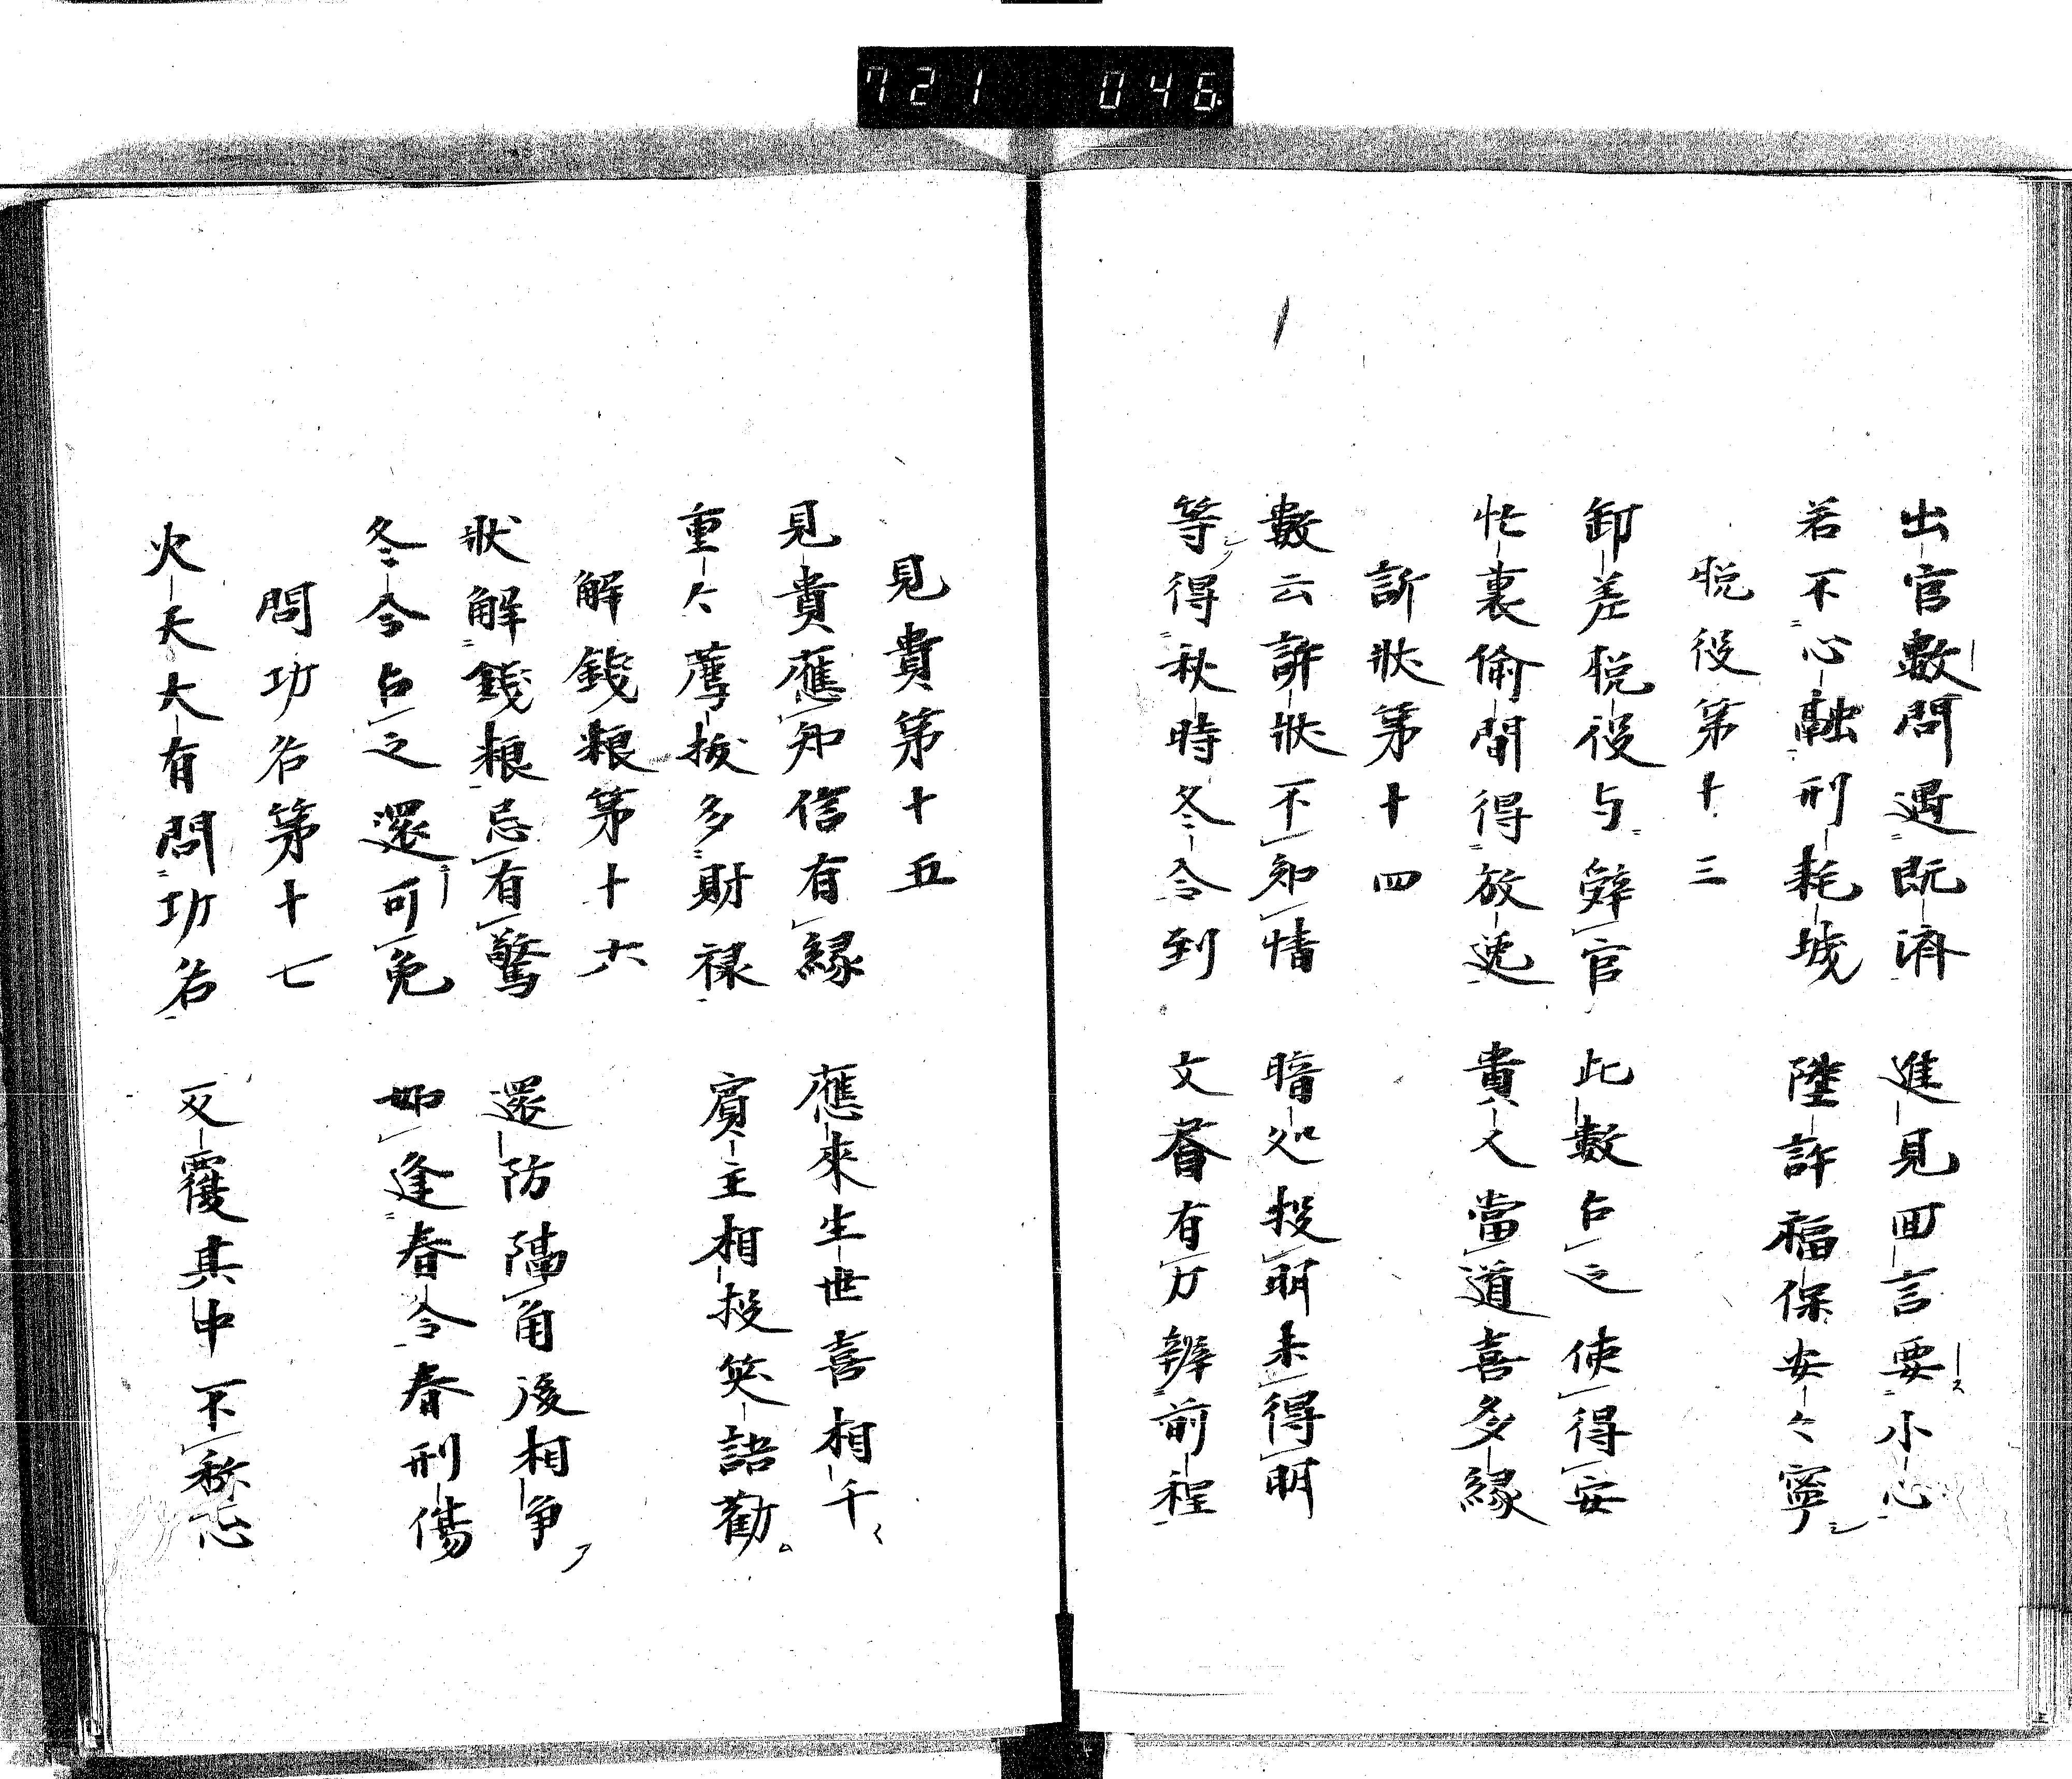 721 046
出官數問遇既濟 進見回言要小心
若不心融刑耗境 陞許福保安々寧
脱役第十三
卸差脱役与辤官 此數占之使得安
忙裏偷閒得放逸 貴人當道喜多縁
訴狀第十四
數云訴狀不知情 暗処投明未得明
等得秋時冬令到 文書有力辨前程
見貴第十五
見貴應知信有縁 應來生世喜相干
重々薦拔多財禄 賓主相投笑語勸
解錢粮第十六
狀解錢粮忌有驚 還防隔角後相争
冬令占之還可免 如逢春令春刑傷
問功名第十七
火天大有問功名 反覆其中不称心